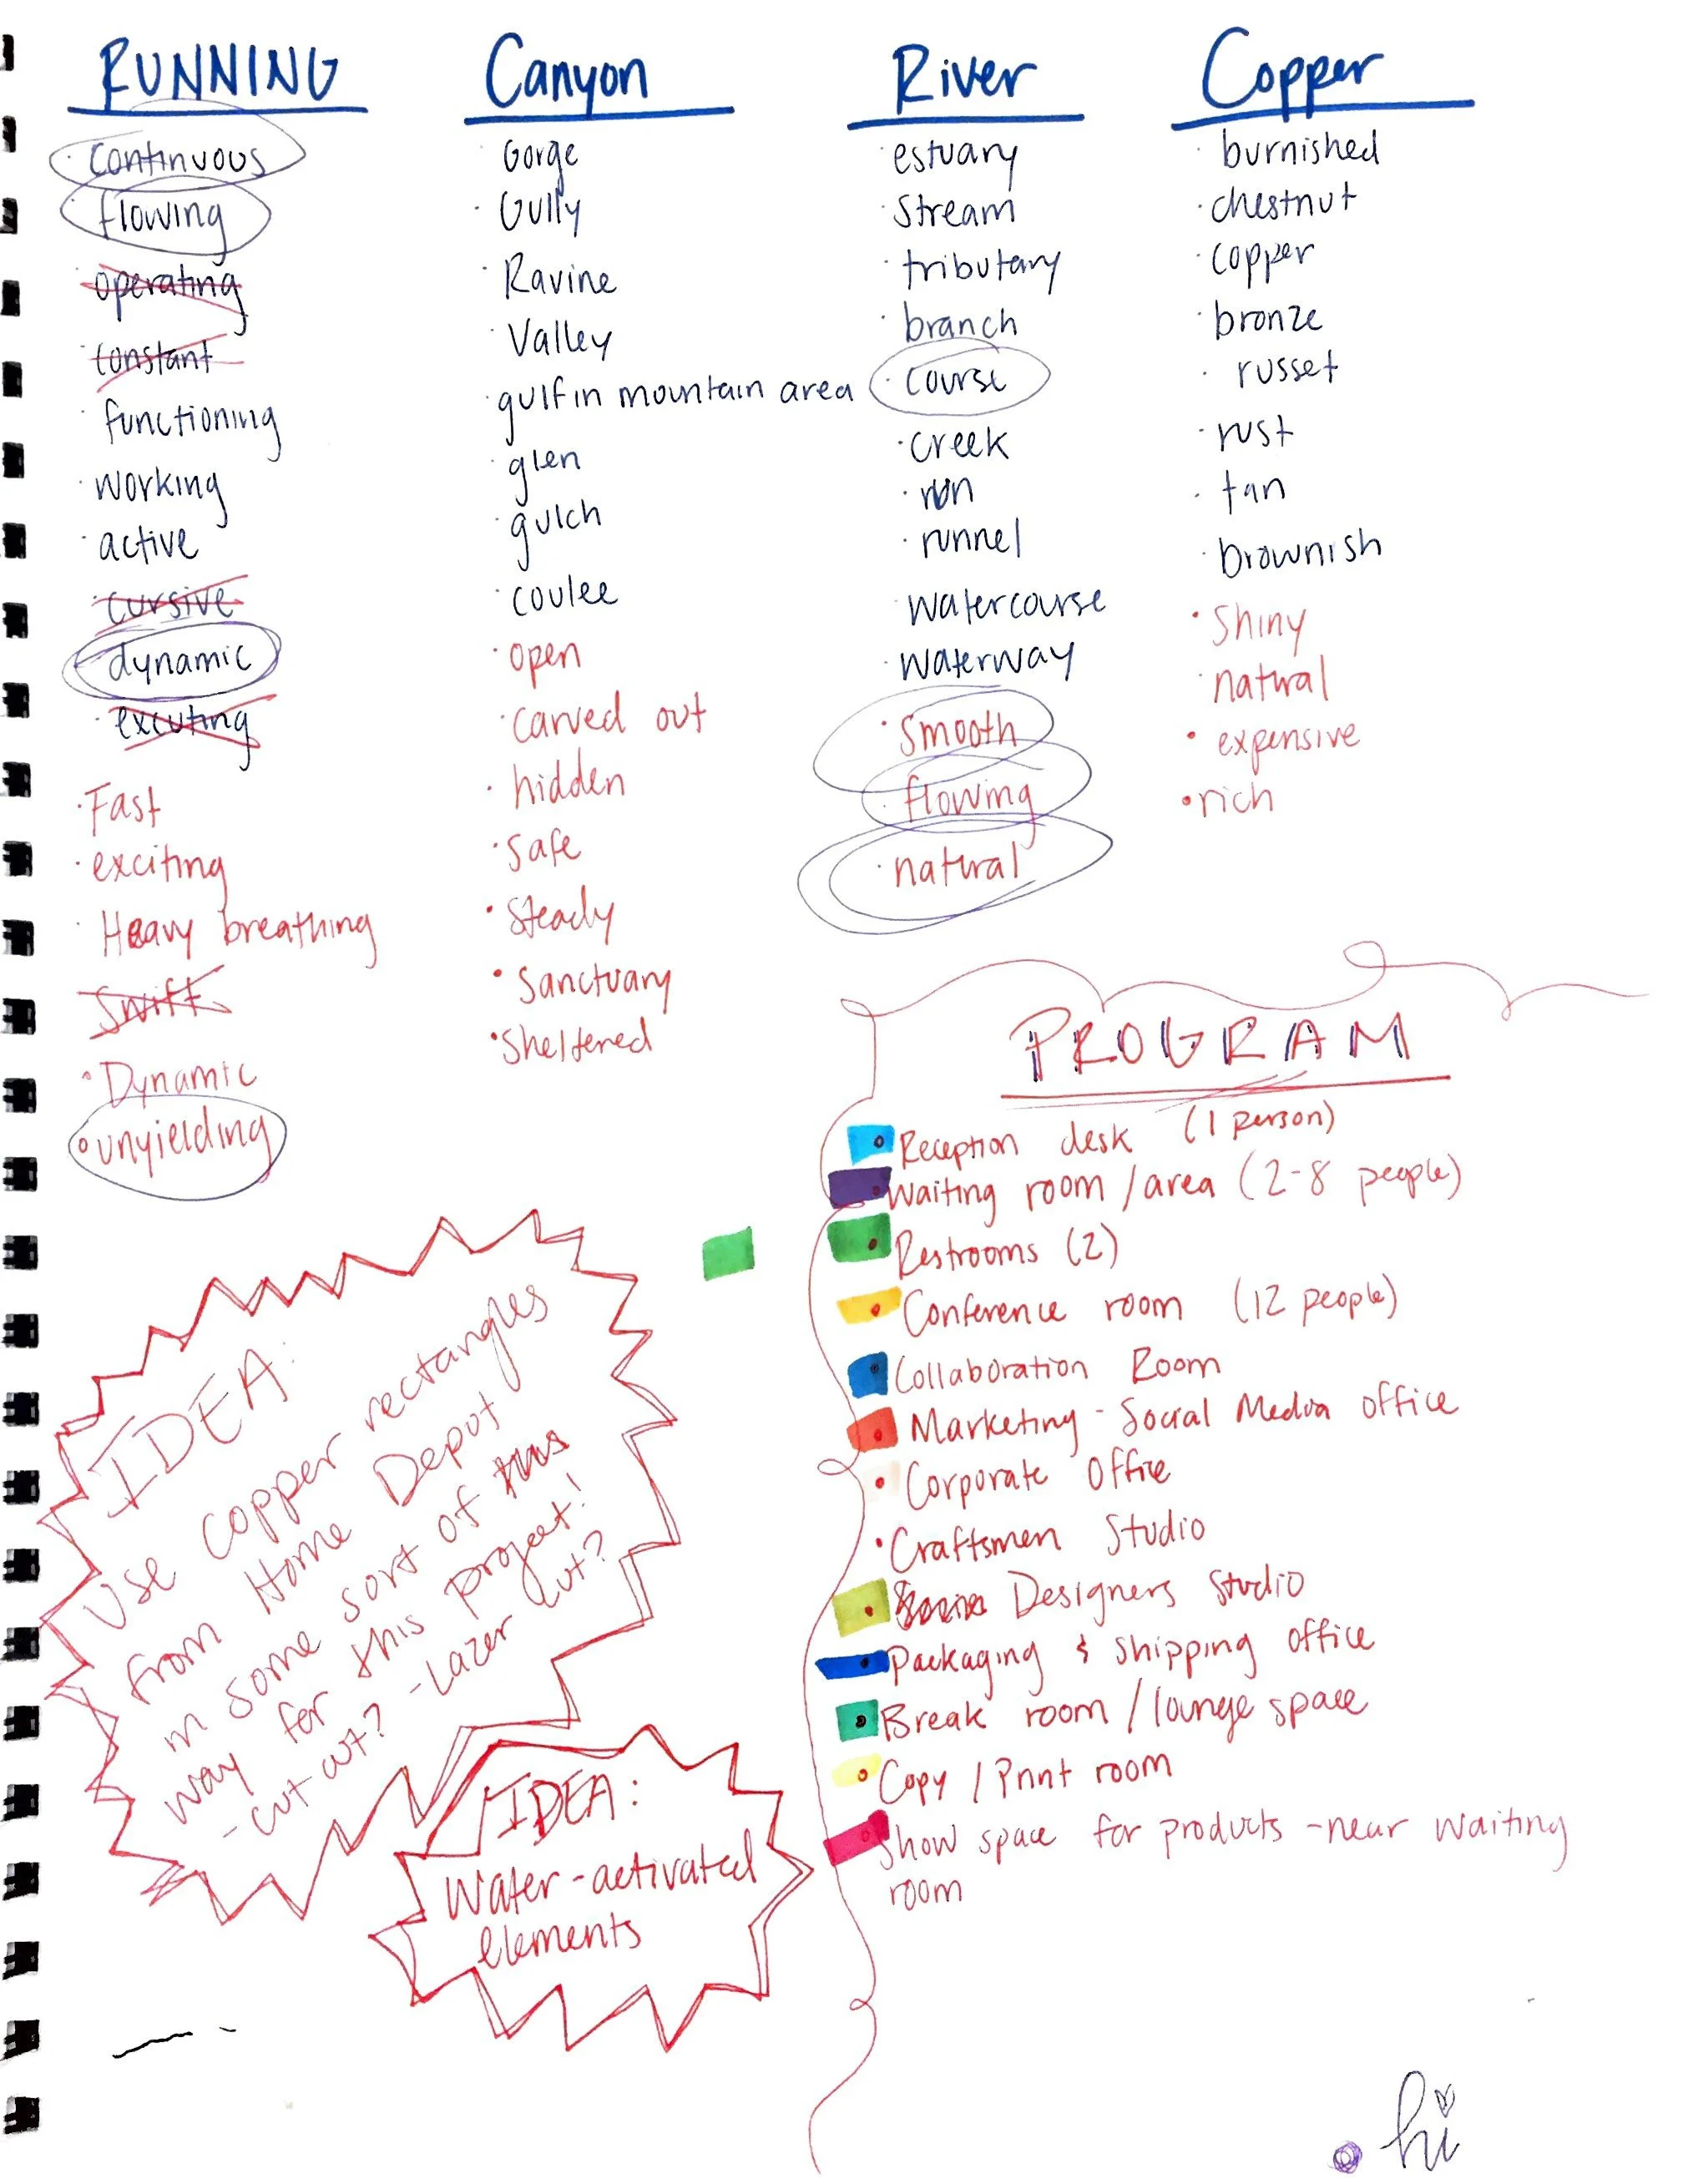 RUNNING
continuous
flowing
operating
constant
functioning
working
active
cursive
dynamic
excuting
Fast
exciting
Heavy breathing
Swift
Dynamic
unyielding
Canyon
Gorge
Gully
Ravine
Valley
gulf in mountain area
glen
gulch
coulee
open
carved out
hidden
safe
steady
Sanctuary
Sheltered
River
estuary
Stream
tributary
branch
course
creek
run
runnel
watercourse
waterway
smooth
flowing
natural
Copper
burnished
chestnut
copper
bronze
russet
rust
tan
brownish
Shiny
natural
expensive
rich
PROGRAM
Reception desk (1 person)
Waiting room / area (2-8 people)
Restrooms (2)
Conference room (12 people)
Collaboration Room
Marketing - Social Media office
Corporate Office
Craftsmen Studio
Designers Studio
Packaging & Shipping office
Break room / lounge space
Copy / Print room
Show space for products - near waiting
room
IDEA:
Use copper rectangles
from Home Depot
in some sort of
way for this project!
- cut out? - Lazer cut?
IDEA:
Water-activated
elements
hi